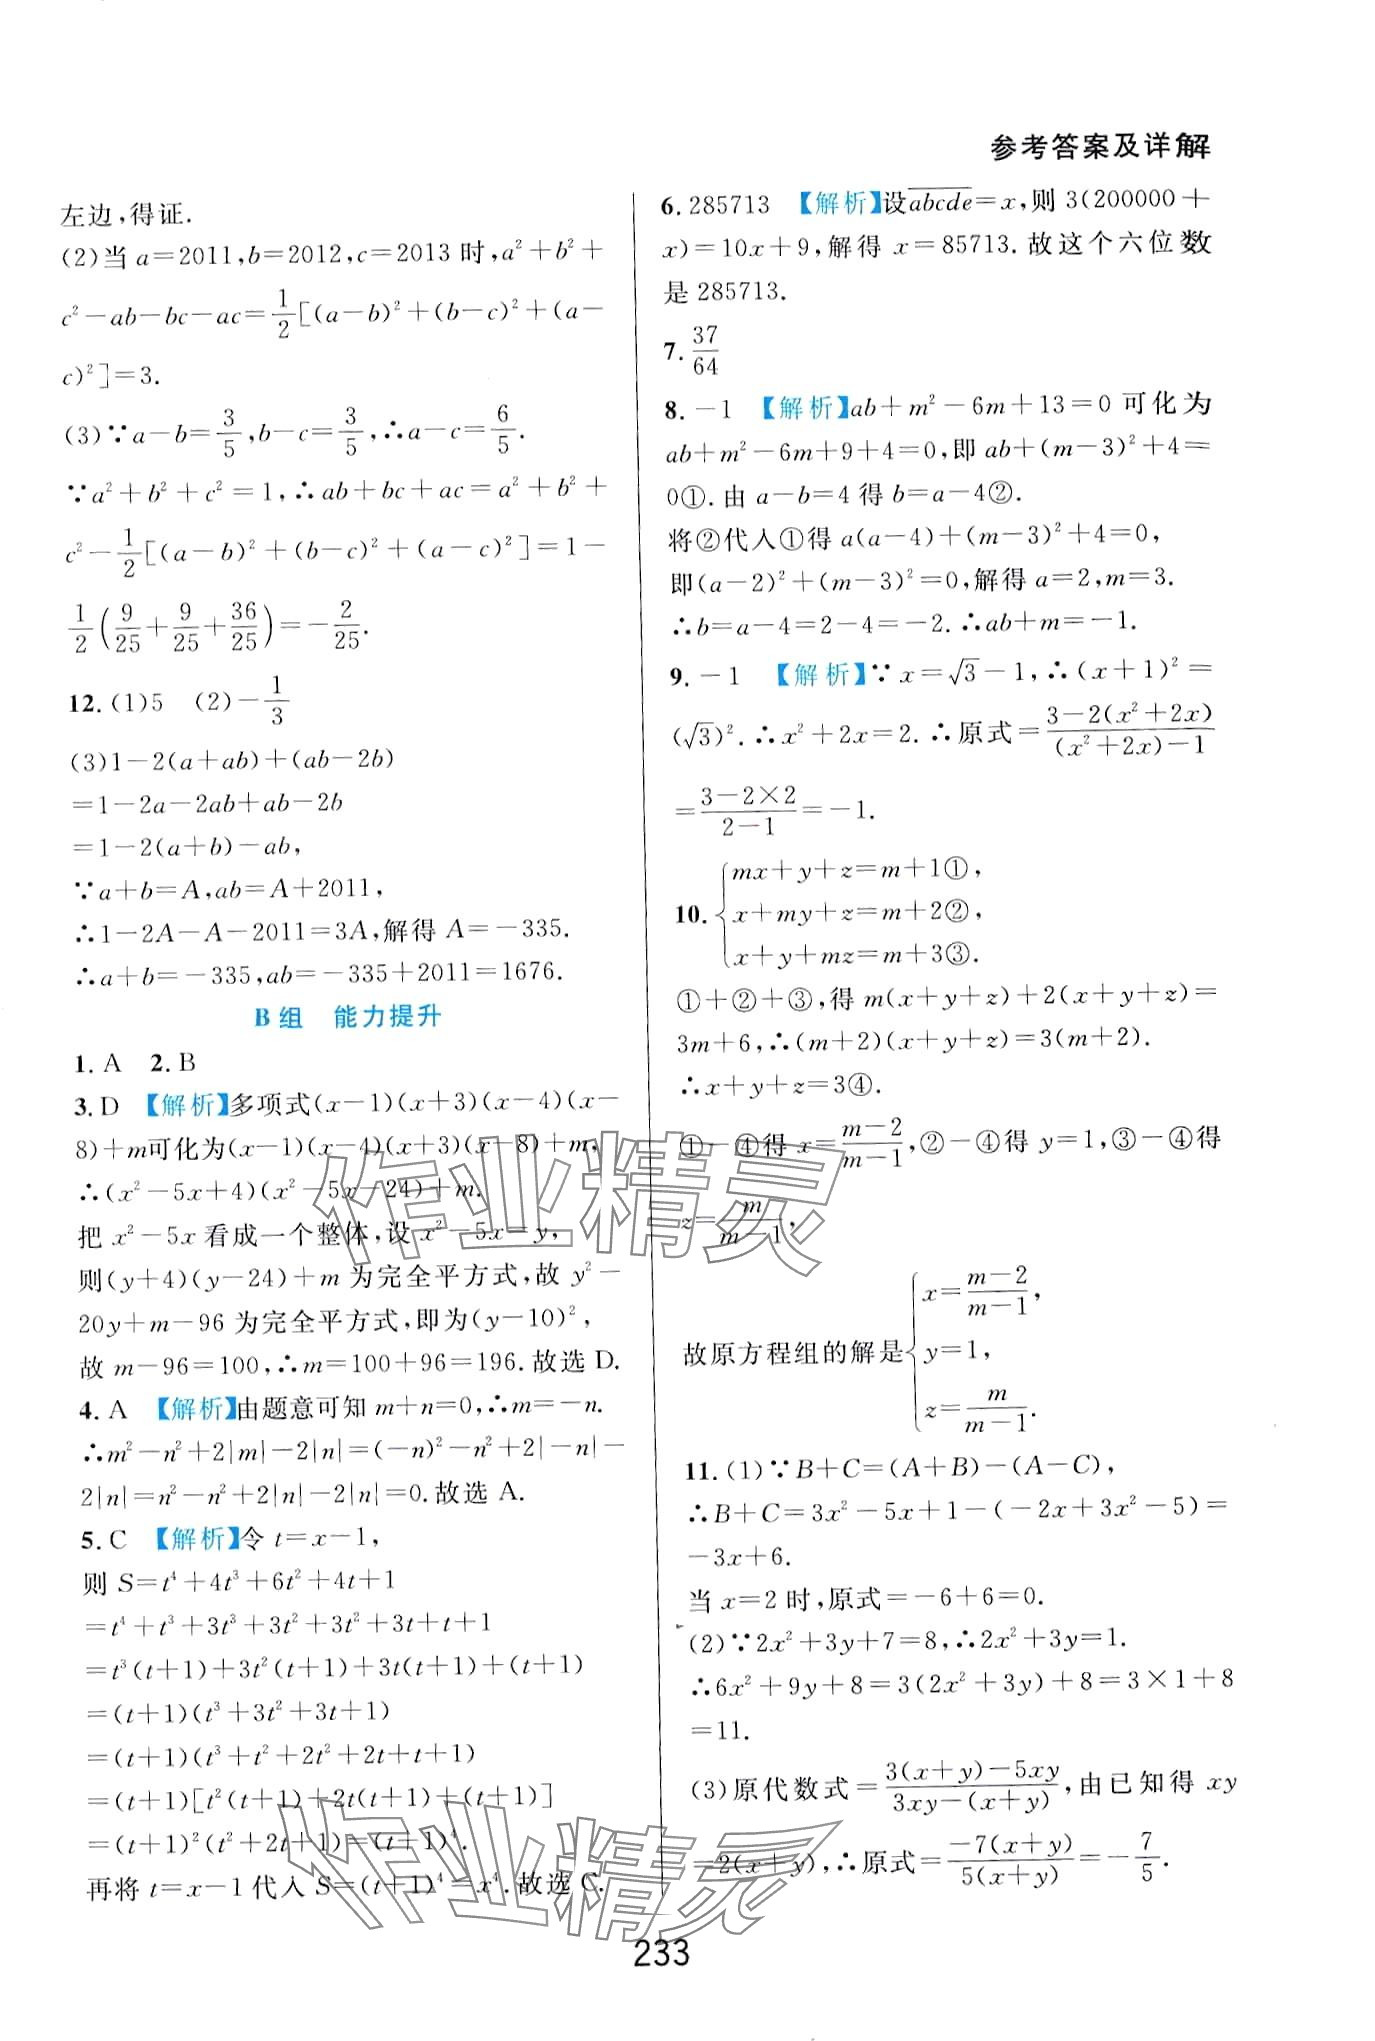 参考答案及详解
左边,得证.
(2)当 a=2011,b=2012,c=2013 时,a²+b²+
c²-ab-bc-ac=\frac{1}{2}[(a-b)²+(b-c)²+(a-
c)²]=3.
(3)∵a-b=\frac{3}{5},b-c=\frac{3}{5},∴a-c=\frac{6}{5}.
∵a²+b²+c²=1,∴ab+bc+ac=a²+b²+
c²-\frac{1}{2}[(a-b)²+(b-c)²+(a-c)²]=1-
\frac{1}{2}(\frac{9}{25}+\frac{9}{25}+\frac{36}{25})=-\frac{2}{25}.
12. (1)5 (2)-\frac{1}{3}
(3)1-2(a+ab)+(ab-2b)
=1-2a-2ab+ab-2b
=1-2(a+b)-ab,
∵a+b=A,ab=A+2011,
∴1-2A-A-2011=3A,解得 A=-335.
∴a+b=-335,ab=-335+2011=1676.
B组 能力提升
1. A 2. B
3. D 【解析】多项式(x-1)(x+3)(x-4)(x-
8)+m可化为(x-1)(x-4)(x+3)(x-8)+m,
∴(x²-5x+4)(x²-5x-24)+m.
把 x²-5x 看成一个整体,设 x²-5x=y,
则(y+4)(y-24)+m 为完全平方式,故 y²-
20y+m-96 为完全平方式,即为(y-10)²,
故 m-96=100,∴m=100+96=196.故选 D.
4. A 【解析】由题意可知 m+n=0,∴m=-n.
∴m²-n²+2|m|-2|n|=(-n)²-n²+2|-n|-
2|n|=n²-n²+2|n|-2|n|=0.故选 A.
5. C 【解析】令 t=x-1,
则 S=t⁴+4t³+6t²+4t+1
=t⁴+t³+3t³+3t²+3t²+3t+t+1
=t³(t+1)+3t²(t+1)+3t(t+1)+(t+1)
=(t+1)(t³+3t²+3t+1)
=(t+1)(t³+t²+2t²+2t+t+1)
=(t+1)[t²(t+1)+2t(t+1)+(t+1)]
=(t+1)²(t²+2t+1)=(t+1)⁴.
再将 t=x-1 代入 S=(t+1)⁴=x⁴.故选 C.
6. 285713 【解析】设\overline{abcde}=x,则 3(200000+
x)=10x+9,解得 x=85713.故这个六位数
是 285713.
7. \frac{37}{64}
8. -1 【解析】ab+m²-6m+13=0 可化为
ab+m²-6m+9+4=0,即 ab+(m-3)²+4=
0①.由 a-b=4 得 b=a-4②.
将②代入①得 a(a-4)+(m-3)²+4=0,
即(a-2)²+(m-3)²=0,解得 a=2,m=3.
∴b=a-4=2-4=-2.∴ab+m=-1.
9. -1 【解析】∵x=√3-1,∴(x+1)²=
(√3)².∴x²+2x=2.∴原式=\frac{3-2(x²+2x)}{(x²+2x)-1}
=\frac{3-2×2}{2-1}=-1.
mx+y+z=m+1①,
10. {x+my+z=m+2②,
x+y+mz=m+3③.
①+②+③,得 m(x+y+z)+2(x+y+z)=
3m+6,∴(m+2)(x+y+z)=3(m+2).
∴x+y+z=3④.
①-④得 x=\frac{m-2}{m-1},②-④得 y=1,③-④得
z=\frac{m}{m-1},
x=\frac{m-2}{m-1},
故原方程组的解是{y=1,
z=\frac{m}{m-1}.
11. (1)∵B+C=(A+B)-(A-C),
∴B+C=3x²-5x+1-(-2x+3x²-5)=
-3x+6.
当 x=2 时,原式=-6+6=0.
(2)∵2x²+3y+7=8,∴2x²+3y=1.
∴6x²+9y+8=3(2x²+3y)+8=3×1+8
=11.
(3)原代数式=\frac{3(x+y)-5xy}{3xy-(x+y)},由已知得 xy
=2(x+y),∴原式=\frac{-7(x+y)}{5(x+y)}=-\frac{7}{5}.
作业精灵
作业精灵
233